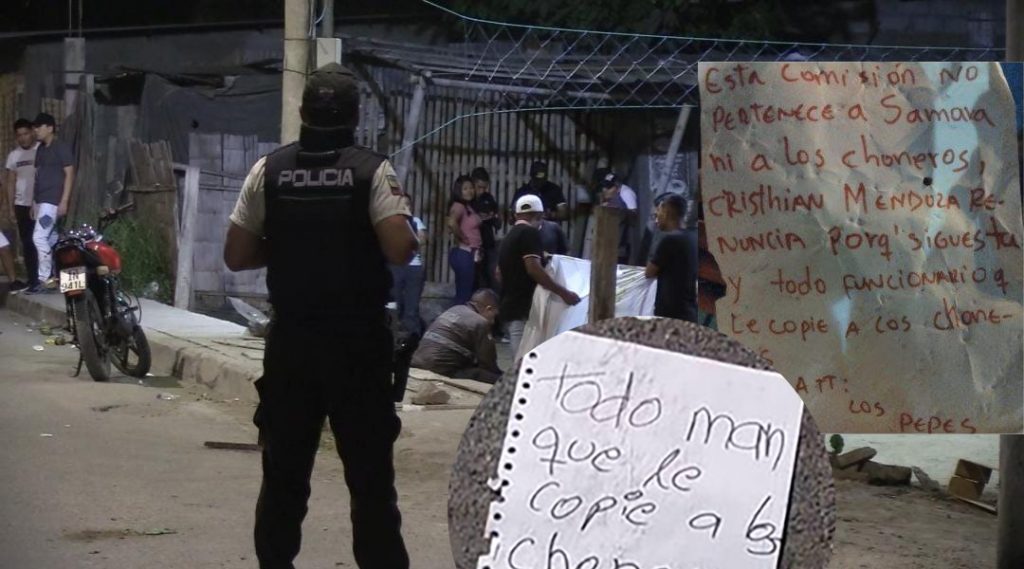 POLICIA
941L
Esta Comisión NO
PERTENECE a Samara
ni a Los choneros,
CRISTHIAN MENDOZA RE-
NUNCIA porq' sigues tu
y todo funcionario q
Le copie a Los chone-
ATT:
LOS PEPES
todo man
que le
copie a los
chone